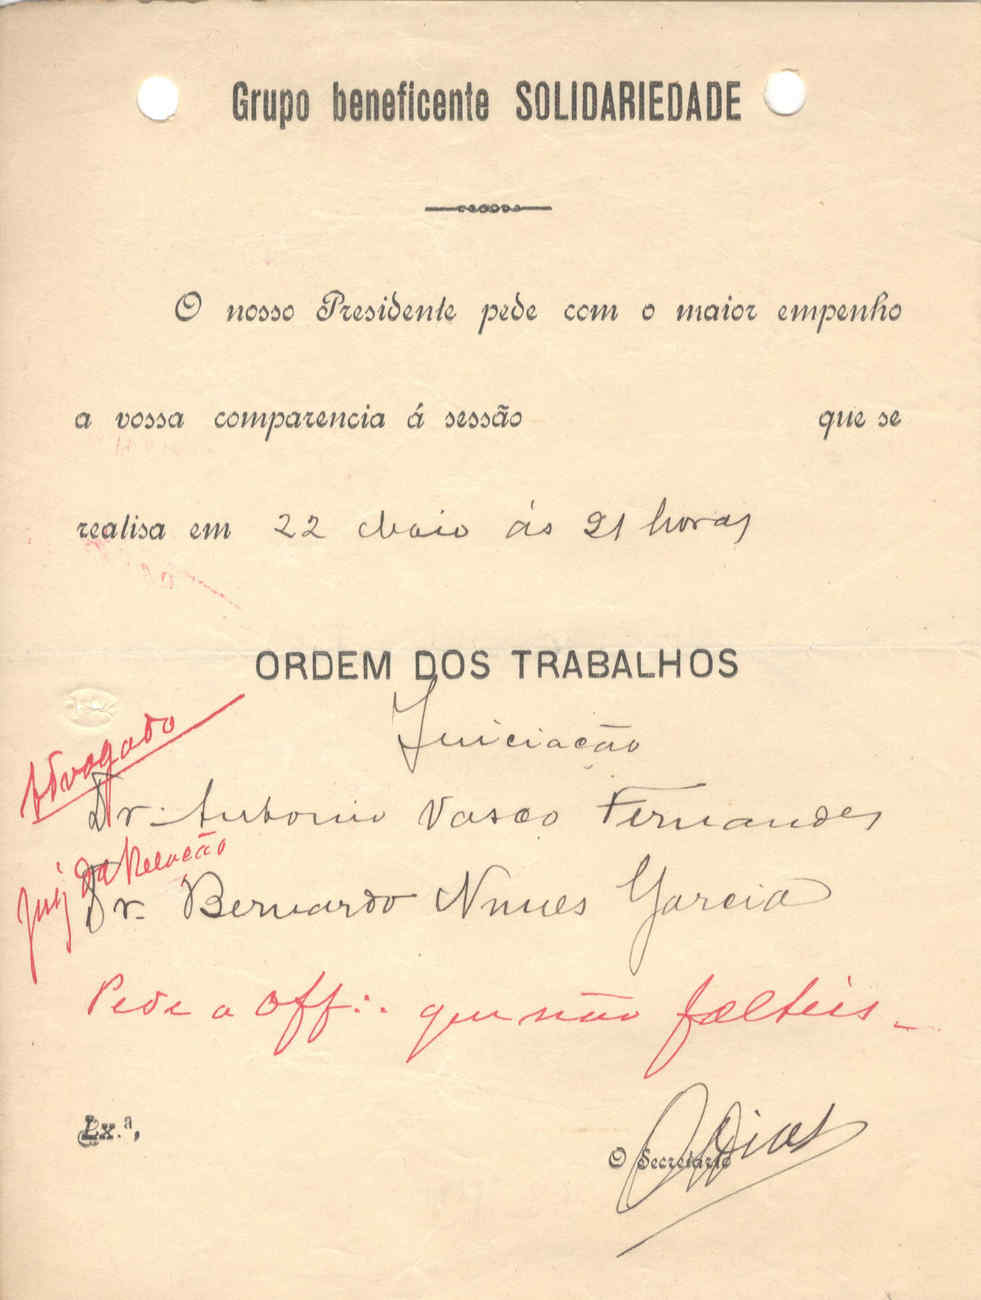 Grupo beneficente SOLIDARIEDADE
O nosso Presidente pede com o maior empenho
a vossa comparencia á sessão que se
realisa em 22 Maio ás 21 horas
ORDEM DOS TRABALHOS
Iniciação
Advogado
Dr. Antonio Vasco Fernandes
Juiz da Relação
Dr. Bernardo Nunes Garcia
Pede a Off∴ que não falteis
Ex.ª,
O Secretario